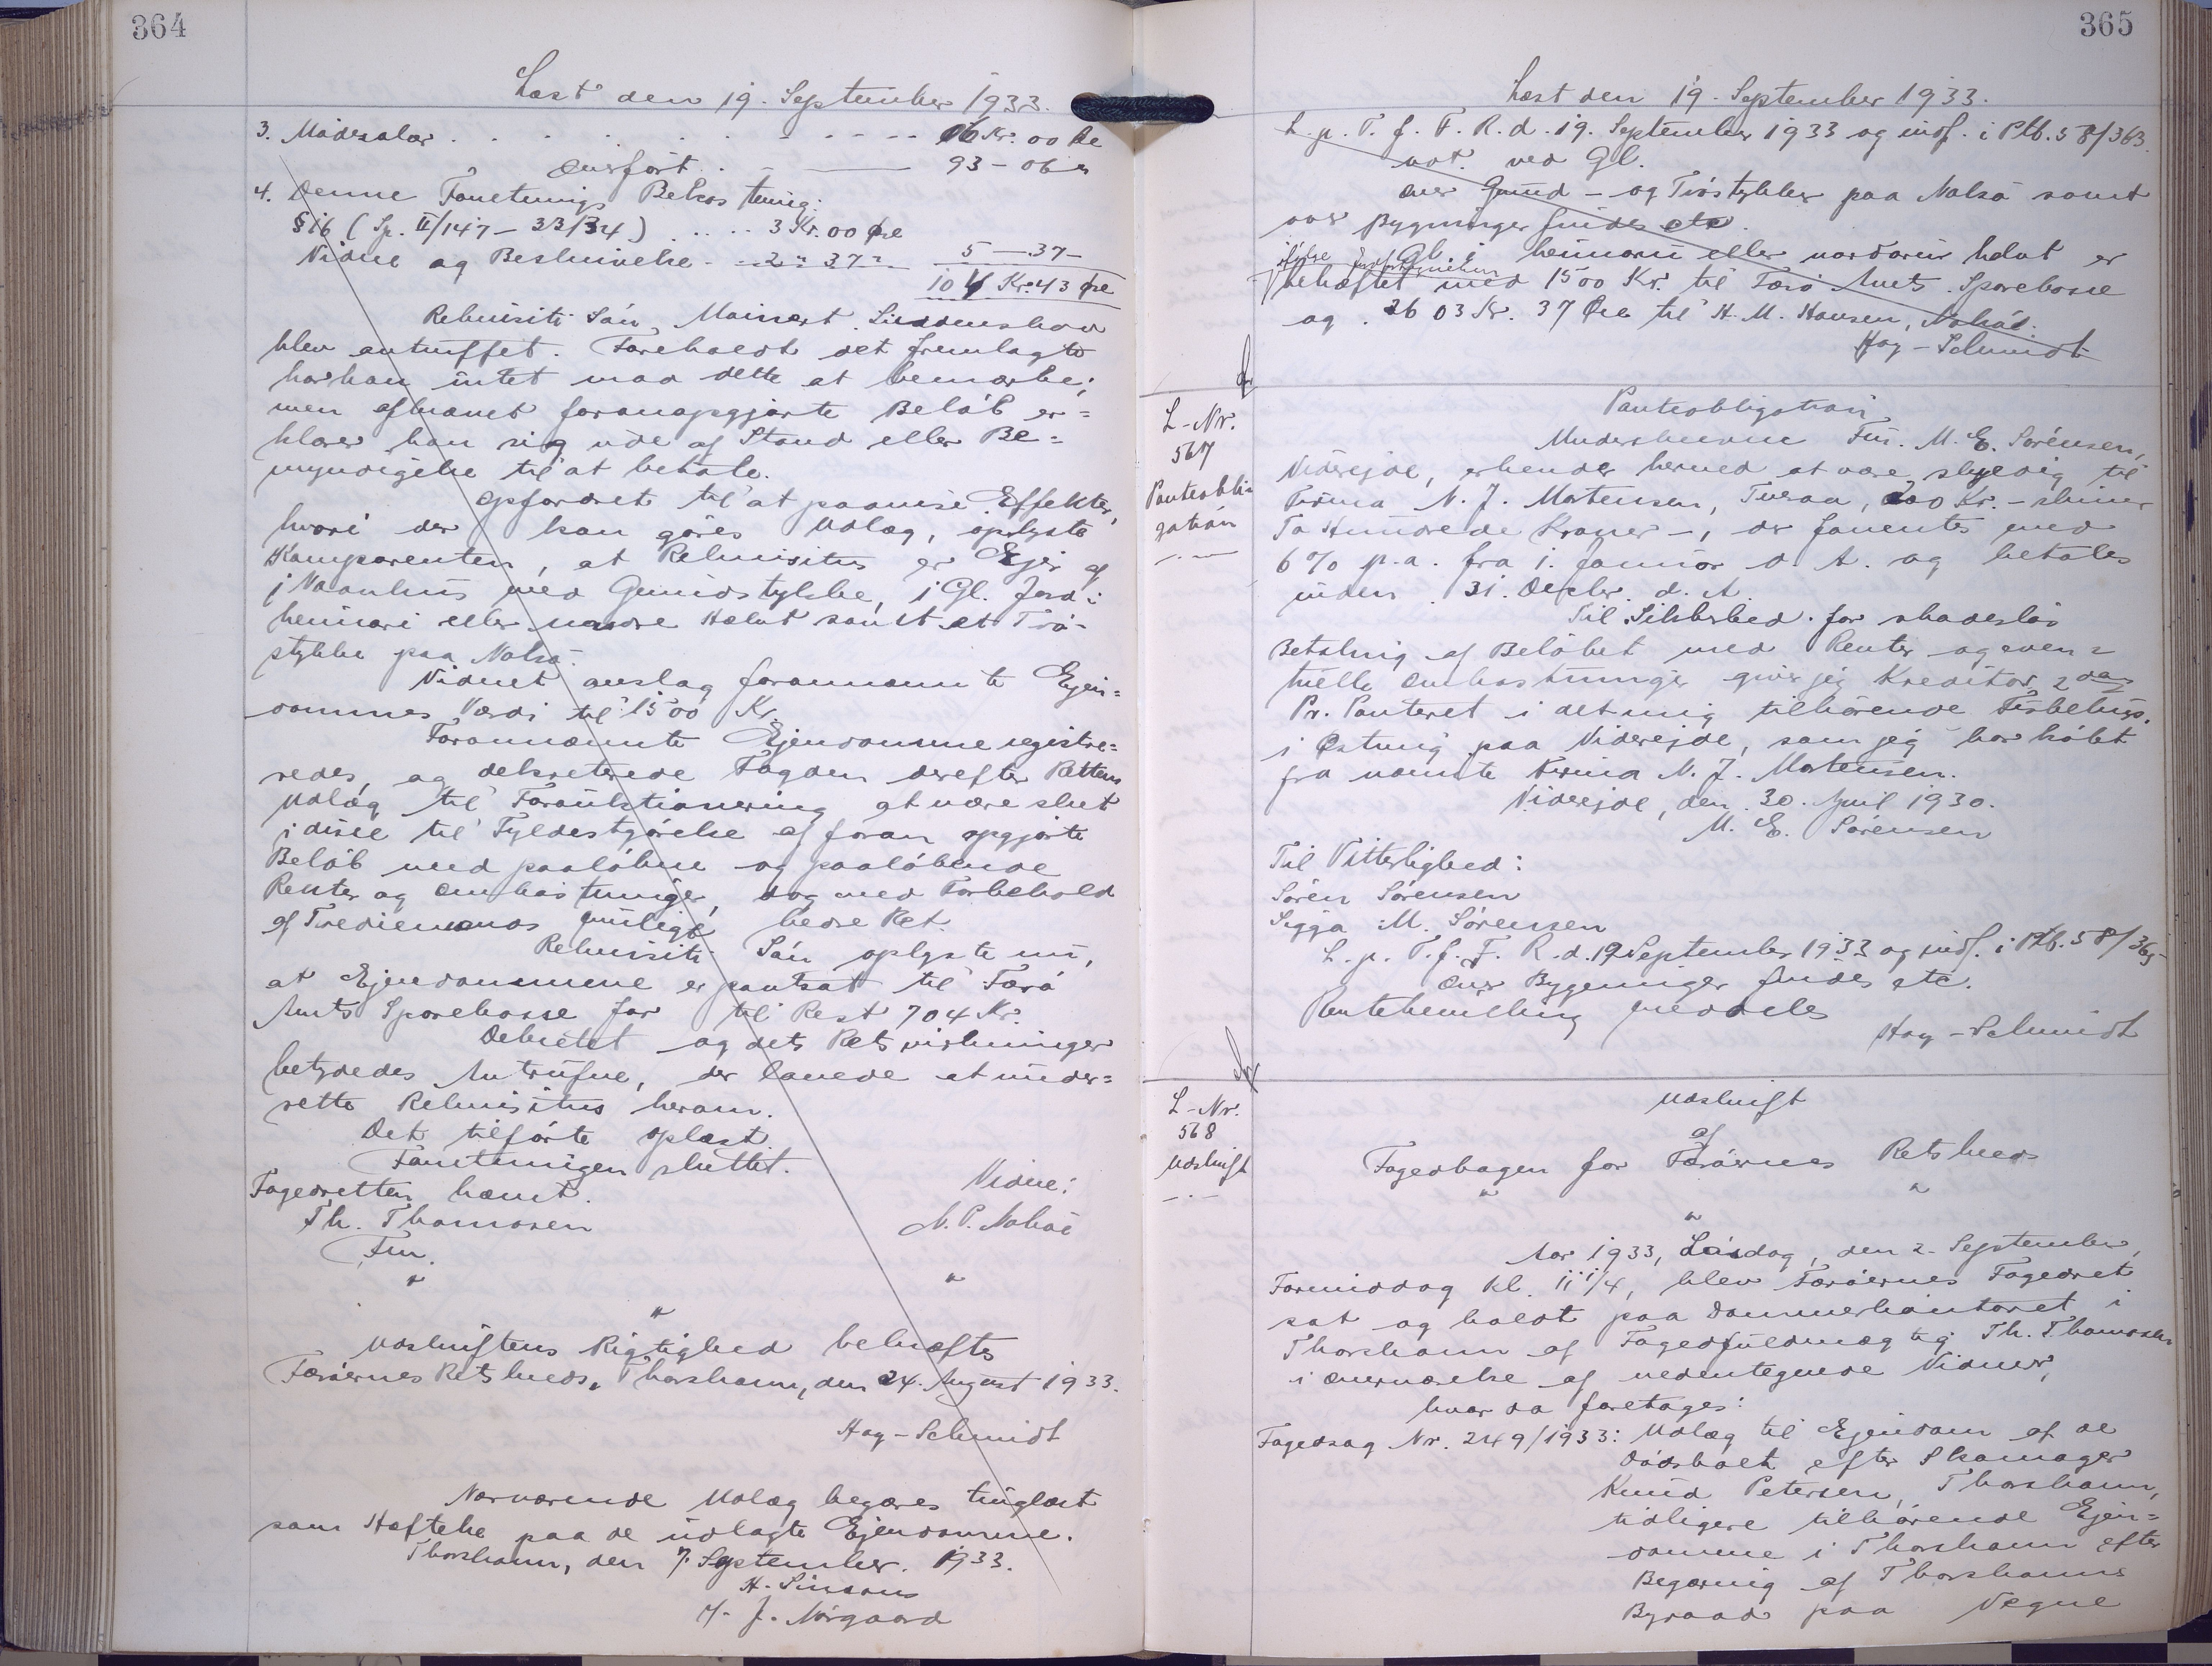 364
Læst den 19. September 1933.
3. Mødesalær . . . . . . . . 6 Kr. 00 Øre
Overført . . 93 - 06 "
4. Denne Forretnings Bekostning:
§ 16 (Sp. II/147 - 33/34) . . . . 3 Kr. 00 Øre
Vidne og Beskrivelse - 2 " 37 " 5 - 37 -
104 Kr. 43 Øre
Rekvisiti Søn, Mainert Liddenskov
blev antruffet. Foreholdt det fremlagte
har han intet mod dette at bemærke;
men afkrævet foranopgjorte Beløb er=
klærer han sig ude af Stand eller Be=
myndigelse til at betale.
Opfordret til at paavise Effekter,
hvori der kan göres Udlæg, oplyste
Komparenten, at Rekvisitus er Ejer af
1 Vaanhus med Grundstykke, 1 Gl. Jord i
heimari eller nordre Halvt samt et Trø-
stykke paa Nolsø.
Vidnet anslog forannævnte Ejen=
dommes Værdi til 1500 Kr.
Forannævnte Ejendomme registre=
redes, og dekreterede Fogden derefter Rettens
Udlæg til Foranstaltionering at være sket
i disse til Fyldestgörelse af foran opgjorte
Beløb med paaløbne og paaløbende
Renter og Omkostninger, dog med Forbehold
af Trediemands mulige bedre Ret.
Rekvisiti Søn oplyste nu,
at Ejendommene er pantsat til Færø
Amts Sparekasse for til Rest 704 Kr.
Dekretet og dets Retsvirkninger
betydedes Antrufne, der lovede at under=
rette Rekvisitus herom.
Det tilførte oplæst.
Forretningen sluttet.
Fogedretten hævet. Vidne:
Th. Thomasen N. P. Nolsøe
Fm.
" "
"
Udskriftens Rigtighed bekræftes
Færøernes Retskreds, Thorshavn, den 24. August 1933.
Hoy-Schmidt
Nærværende Udlæg begæres tinglæst
som Hæftelse paa de udlagte Ejendomme.
Thorshavn, den 7. September 1933.
H. Simsons
/ J. Nørgaard
365
Læst den 19. September 1933.
L. p. T. f. F. R. d. 19. September 1933 og indf. i Ptb. 58/363.
not. ved Gl.
over Grund- og Trøstykker paa Nolsø samt
over Bygninger findes etc.
Gl. i heimari eller nordari helvt er
behæftet med 1500 Kr. til Færø Amts Sparekasse
og 2603 Kr. 37 Øre til H. M. Hansen, Nolsø.
Hoy-Schmidt
L-Nr.
567
Panteobli-
gation
- . -
Panteobligation
Underskrevne Fru. M. E. Sørensen,
Viderejde, erkender herved at være skyldig til
Firma N. J. Mortensen, Tveraa, 200 Kr. - skriver
To Hundrede Kroner -, der forrentes med
6% p.a. fra 1. Januar d. A. og betales
inden 31. Decbr. d. A.
Til Sikkerhed for skadesløs
Betaling af Beløbet med Renter og even=
tuelle Omkostninger giver jeg Kreditor 2den
Pr. Panteret i det mig tilhørende Fiskehus,
i Østning paa Viderejde, som jeg har købt
fra nævnte Firma N. J. Mortensen.
Viderejde, den 30. April 1930.
M. E. Sørensen
Til Vitterlighed:
Sören Sørensen
Sigga M. Sørensen
L. p. T. f. F. R. d. 19 September 1933 og indf. i Ptb. 58/365
Over Bygninger findes etc.
Retsbemerkning meddeles
Hoy-Schmidt
L-Nr.
568
Udskrift
- . -
Udskrift
af
Fogedbogen for Færøernes Retskreds
" "
"
Aar 1933, Lørdag, den 2. September,
Formiddag Kl. 11 1/4, blev Færøernes Fogedret
sat og holdt paa Dommerkontoret i
Thorshavn af Fogedfuldmægtig Th. Thomasen
i Overværelse af nedentegnede Vidner,
hvor da foretages:
Fogedsag Nr. 249/1933: Udlæg til Ejendom af de
Dødsboet efter Skomager
Knud Petersen, Thorshavn,
tidligere tilhørende Ejen=
domme i Thorshavn efter
Begæring af Thorshavns
Byraad paa Vegne